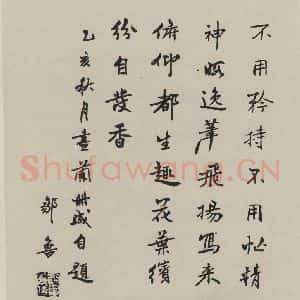 不用矜持不用忙精
神暇逸筆飛揚寫来
俯仰都生趣花葉繽
紛自發香
乙亥秋月畫蘭冊成自題
鄒魯
Shufawang.CN